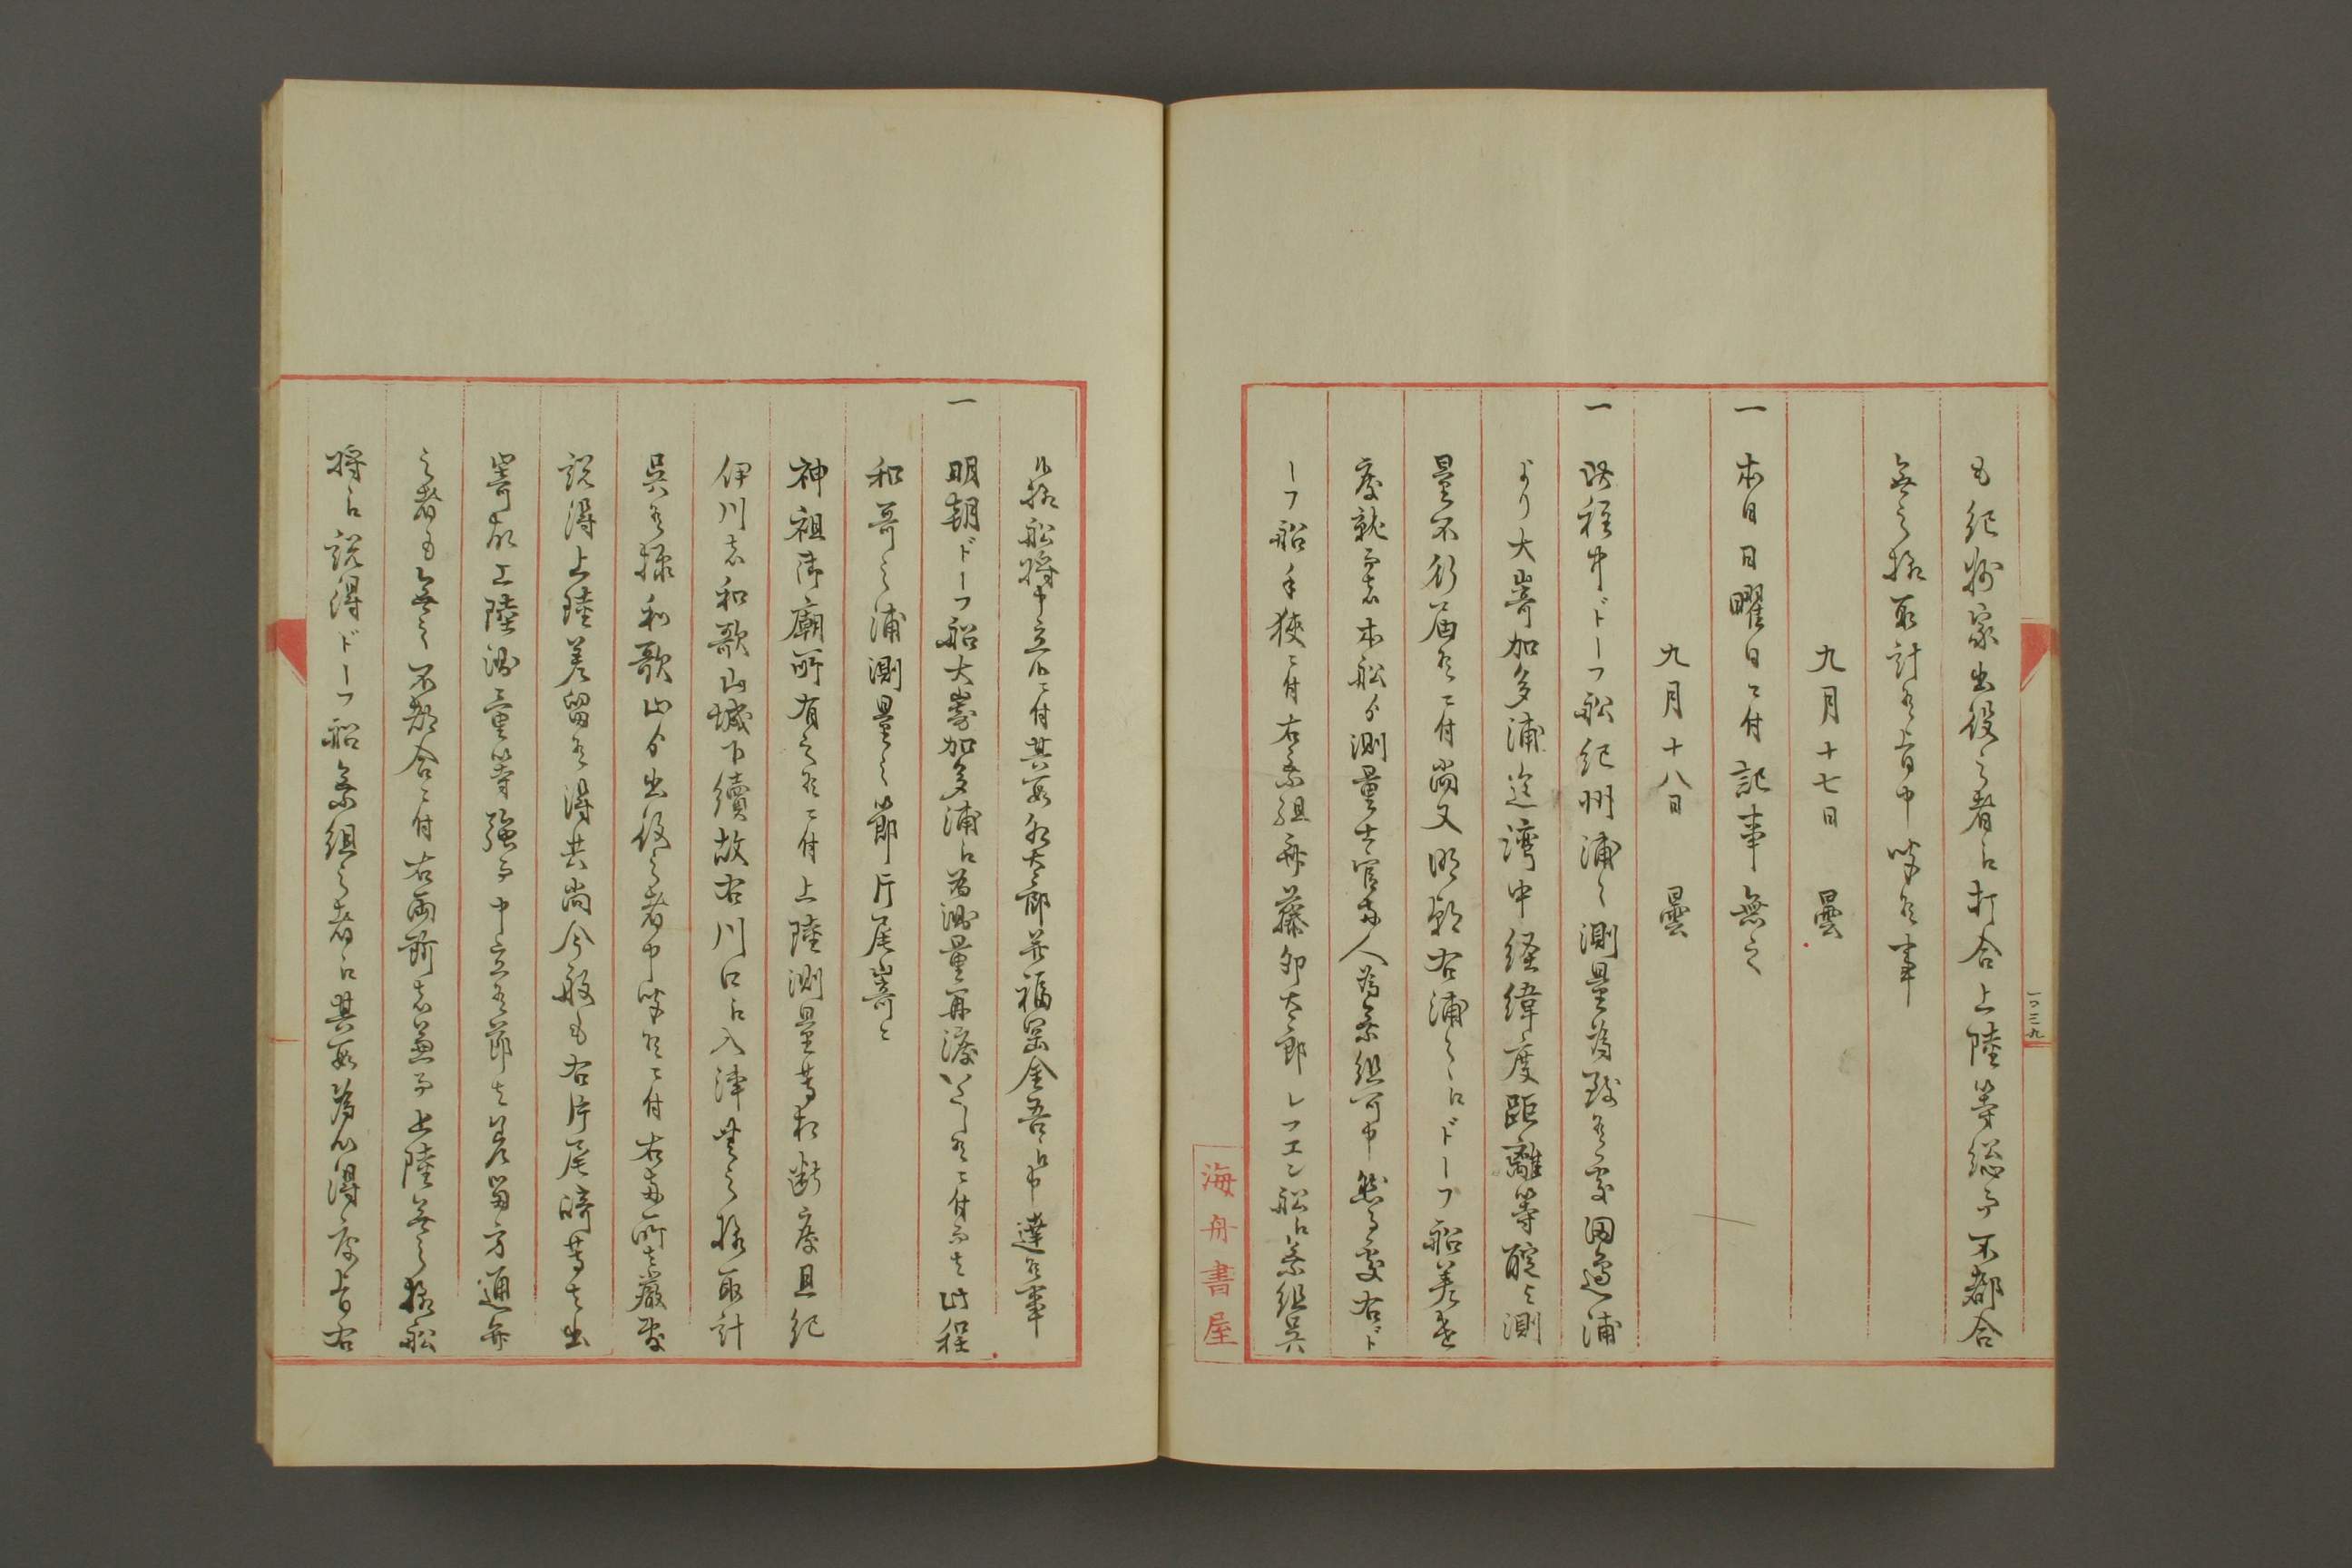 も紀州家出役之者江打合上陸等総而不都合
無之様取計可有旨申聞候事
九月十七日 曇
一 本日日曜日ニ付記事無之
九月十八日 曇
一 此程中ドーフ船紀州浦々測量為致候處田邊浦
より大嵜加多浦迄湾中経緯度距離等聢と測
量不行届候ニ付尚又明朝右浦々江ドーフ船差遣
度就而者本船ゟ測量士官両人為乗組可申然る處右ド
ーフ船手狭ニ付右乗組斎藤卯太郎シフエン船江乗組呉
候様船将申立候ニ付其段卯太郎并福岡金吾江申達候事
一 明朝ドーフ船大嵜加多浦江為測量再渡いたし候ニ付而者此程
和哥之浦測量之節片尾嵜と
神祖御廟所有之候ニ付上陸測量等相断度且紀
伊川者和歌山城下續故右川口江入津無之様取計
呉候様和歌山ゟ出役之者申聞候ニ付右両所者厳敷
説得上陸差留候得共尚今般も右片尾﨑等者出
嵜故上陸測量等強而申立候節者差留方通弁
之者も無之不都合ニ付右両所者兼而上陸無之様船
将江説得ドーフ船乗組之者江其段為心得度旨右
一〇三九
海舟書屋